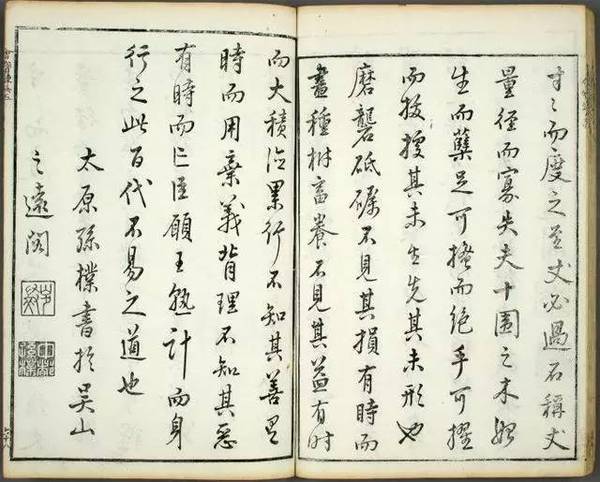 寸〻而度之至丈必過石稱丈
量徑而寡失夫十圍之木始
生而蘖足可搔而絕手可擢
而拔據其未生先其未形也
磨礱砥礪不見其損有時而
盡種樹畜養不見其益有時
而大積德累行不知其善有
時而用棄義背理不知其惡
有時而亡臣願王孰計而身
行之此百代不易之道也
太原孫樸書於吳山
之遠閣